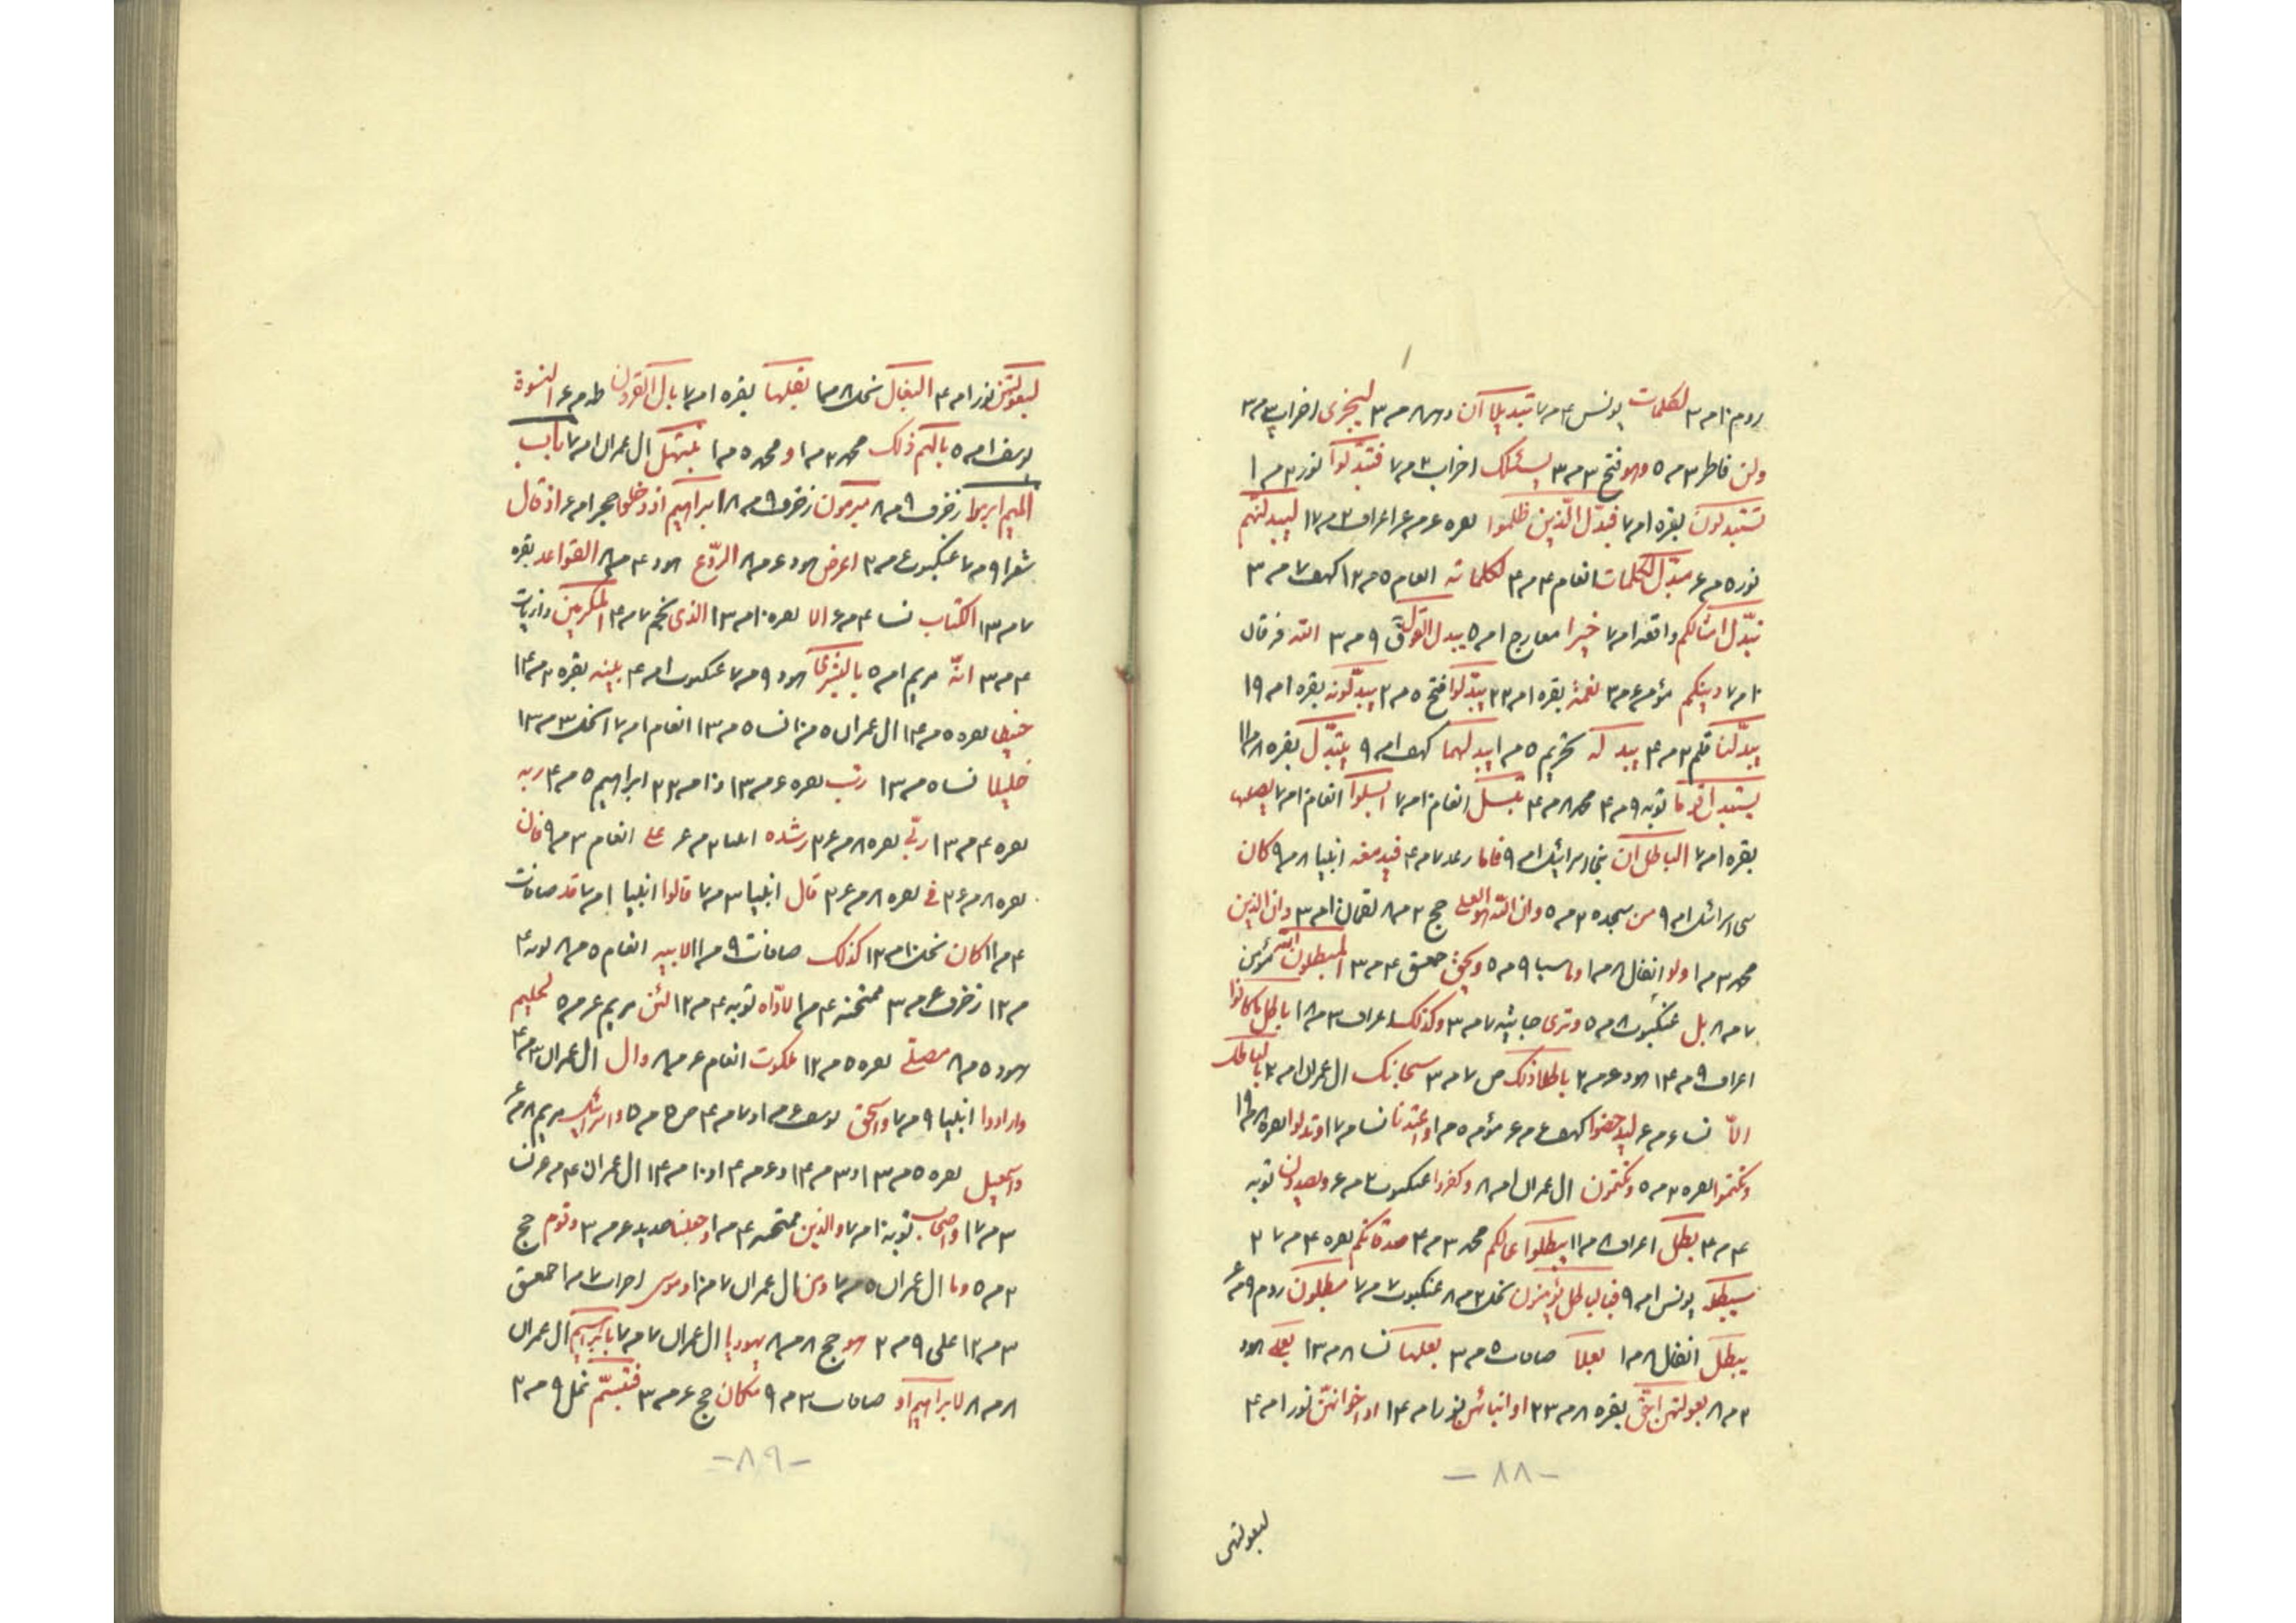 روم ۱۰ مر ۳ لکلمات یونس ۴ مر ۷ تبدیلا ان دهر ۸ مر ۳ لیجزی احزاب ۳ مر ۳
ولن فاطر ۳ مر ۵ وهو فتح ۳ مر ۳ یسئلک احزاب ۳ مر ۷ فتبدلوا نور ۳ مر ۱
تستبدلون بقره ۱ مر ۷ فبدل الذین ظلموا بقره ۶ مر ۶ اعراف ۳ مر ۱۷ لیبدلنهم
نور ۵ مر ۶ مبدل لکلمات انعام ۴ مر ۴ لکلماته انعام ۵ مر ۱۲ کهف ۷ مر ۳
نبدل امثالکم واقعه ۱ مر ۷ خیرا معارج ۱ مر ۵ یبدل القول ق ۹ مر ۳ الله فرقان
۱۰ مر ۷ دینکم مؤمن ۶ مر ۳ نعمة بقره ۱ مر ۲۲ یبدلوا فتح ۵ مر ۲ یبدلونه بقره ۱ مر ۱۹
یبدلنا قلم ۳ مر ۴ یبدله تحریم ۵ مر ۱ یبدلهما کهف ۱ مر ۹ یتبدل بقره ۸ مر ۱۱
یستبدل قوما توبه ۹ مر ۴ محمد ۸ مر ۴ تبسل انعام ۱۰ مر ۷ ابسلوا انعام ۱۰ مر ۷ بصلها
بقره ۱ مر ۷ الباطل ان بنی اسرائیل ۱ مر ۹ فاما رعد ۷ مر ۴ فیدمغه انبیا ۸ مر ۹ کان
بنی اسرائیل ۱ مر ۹ من سجده ۳ مر ۵ وان الله هو العلی حج ۲ مر ۸ لقمان ۱۰ مر ۳ وان الذین
محمد ۳ مر ۱ ولو انفال ۸ مر ۱ وما سبا ۹ مر ۵ ویحق حمعسق ۴ مر ۳ المبطلون
۷ مر ۸ بل عنکبوت ۸ مر ۵ وتری جاثیه ۷ مر ۳ وکذلک اعراف ۳ مر ۱۸ باطل ما کانوا
اعراف ۹ مر ۱۴ هود ۶ مر ۲ باطلا ذلک ص ۷ مر ۳ سبحانک ال عمران ۱ مر ۲ بالباطل
الا نساء ۶ مر ۶ لیدحضوا کهف ۶ مر ۶ مؤمن ۵ مر ۱ واعتدنا نسا ۳ مر ۱۷ وتدلوا بقره ۸ مر ۱۹
وتکتموا بقره ۳ مر ۵ وتکتمون ال عمران ۱ مر ۸ وکفروا عنکبوت ۳ مر ۶ ویصدون توبه
۴ مر ۴ بطل اعراف ۸ مر ۱۱ یبطلوا اعمالکم محمد ۳ مر ۴ صدقاتکم بقره ۴ مر ۲۷
سیبطله یونس ۱ مر ۹ فبالباطل یؤمنون نحل ۲ مر ۸ عنکبوت ۷ مر ۷ مبطلون روم ۹ مر ۶
یبطل انفال ۸ مر ۱ بعلا صافات ۵ مر ۳ بعلها نسا ۸ مر ۱۳ بعلی هود
۲ مر ۸ بعولتهن احق بقره ۸ مر ۲۳ او ابنائهن نور ۱ مر ۱۴ او اخوانهن نور ۱ مر ۴
-۸۸-
لبعولتهن
لبعولتهن نور ۱ مر ۴ البغال نحل ۸ مما بقلها بقره ۱ مر ۷ بال القرون طه ۳ مر ۶ النسوة
یوسف ۱ مر ۵ بالهم ذلک محمد ۲ مر ۱ ومحمد ۵ مر ۱ نبتهل ال عمران ۱ مر ۷ باب
المیم ابرموا زخرف ۹ مر ۸ مبرمون زخرف ۹ مر ۸ ابراهیم اذ دخلوا حجر ۱ مر ۶ اذ قال
شعرا ۹ مر ۷ عنکبوت ۶ مر ۲ اعرض هود ۶ مر ۸ الروع هود ۴ مر ۸ القواعد بقره
۷ مر ۱۳ الکتاب نسا ۴ مر ۶ الا بقره ۱۰ مر ۱۳ الذی نجم ۷ مر ۴ المکرمین ذاریات
۴ مر ۳ انه مریم ۱ مر ۵ بالبشری هود ۹ مر ۷ عنکبوت ۱ مر ۴ بنیه بقره ۲ مر ۱۴
حنیفا بقره ۵ مر ۱۴ ال عمران ۵ مر ۱۰ نسا ۵ مر ۱۳ انعام ۱ مر ۱۷ نحل ۳ مر ۱۳
خلیلا نسا ۵ مر ۱۳ رب بقره ۶ مر ۱۳ و ۱۰ مر ۲۳ ابراهیم ۵ مر ۴ ربه
بقره ۴ مر ۱۳ ربی بقره ۸ مر ۲۶ رشده انبیا ۲ مر ۶ علی انعام ۳ مر ۹ فان
بقره ۸ مر ۲۶ فی بقره ۸ مر ۲۶ قال انبیا ۳ مر ۷ قالوا انبیا ۱ مر ۷ قد صافات
۴ مر ۱۱ کان نحل ۱۰ مر ۱۳ کذلک صافات ۹ مر ۱۱ لابیه انعام ۵ مر ۸ توبه ۴
مر ۱۲ زخرف ۶ مر ۳ ممتحنه ۴ مر ۱ لاواه توبه ۴ مر ۱۲ لئن مریم ۶ مر ۵ لحلیم
هود ۵ مر ۸ مصلی بقره ۵ مر ۱۲ ملکوت انعام ۶ مر ۸ وال ال عمران ۳ مر ۴
وارادوا انبیا ۹ مر ۷ واسحق یوسف ۶ مر ۱ و ۷ مر ۴ ص ۵ مر ۵ واسرائیل مریم ۸ مر ۶
واسمعیل بقره ۵ مر ۱۳ و ۳ مر ۱۴ و ۶ مر ۱۴ و ۱۰ مر ۱۴ ال عمران ۴ مر ۶ نسا
۳ مر ۱۷ واصحاب توبه ۱۰ مر ۷ والذین ممتحنه ۴ مر ۱ وجعلنا حدید ۶ مر ۳ وقوم حج
۲ مر ۵ وما ال عمران ۵ مر ۷ ومن ال عمران ۷ مر ۱۰ وموسی احزاب ۷ مر ۱ حمعسق
۳ مر ۱۲ علی ۹ مر ۲ هو حج ۸ مر ۸ یهودیا ال عمران ۷ مر ۷ بابراهیم ال عمران
۸ مر ۸ لابراهیم او صافات ۳ مر ۹ مکان حج ۶ مر ۳ فتبسم نمل ۹ مر ۲
-۸۹-